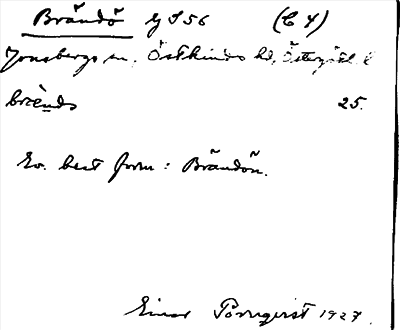 Brändö Gs S6 (C 4)
Jonsbergs sn, Östkinds hd, Östergötl. l
brändö 25.
Ev. best form: Brändön.
Einar Törnqvist 1927.